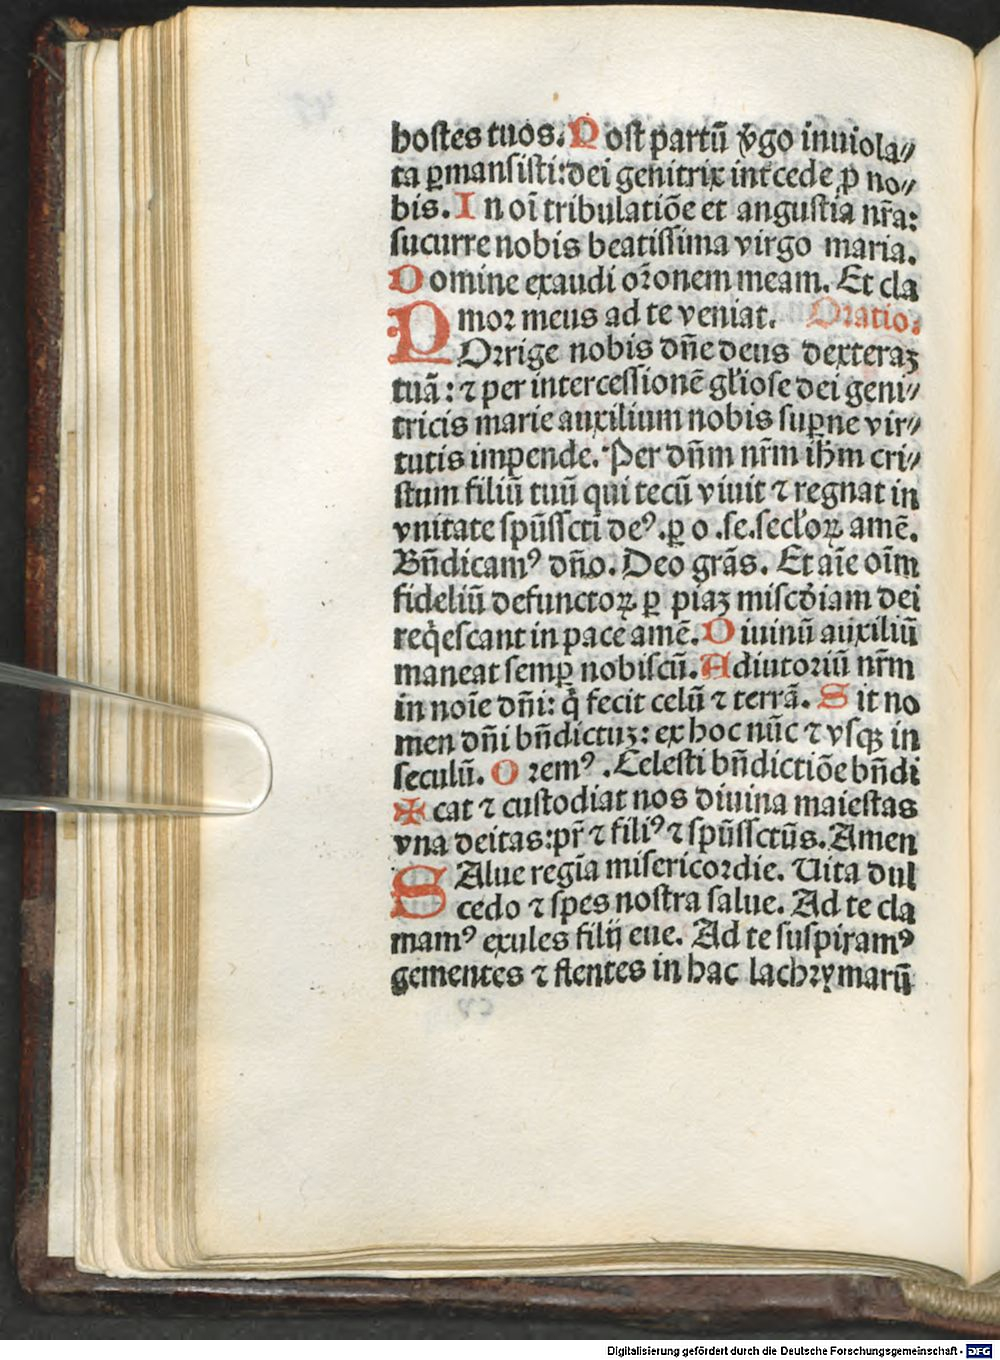 hostes tuos. Post partū ṽgo inuiola⸗
ta ꝑmansisti: dei genitrix int̃cede ꝓ no⸗
bis. In oĩ tribulatiõe et angustia nr̃a:
sucurre nobis beatissima virgo maria.
Domine exaudi or̃onem meam. Et cla
mor meus ad te veniat. Oratio.
POrrige nobis dñe deus dexteraꝫ
tuã: ⁊ per intercessionẽ gl̃iose dei geni⸗
tricis marie auxilium nobis suꝑne vir⸗
tutis impende. Per dñm nr̃m ih̃m cri⸗
stum filiũ tuũ qui tecũ viuit ⁊ regnat in
vnitate spũssct̃i deꝰ. ꝑ o .se. secl̃oꝝ amẽ.
Bñdicamꝰ dño. Deo grãs. Et aĩe oĩm
fideliũ defunctoꝝ ꝑ piaꝫ misc̃diam dei
req̃escant in pace amẽ. Diuinũ auxiliũ
maneat semꝑ nobiscũ. Adiutoriũ nr̃m
in noĩe dñi: q̃ fecit celũ ⁊ terrã. Sit no
men dñi bñdictuꝫ: ex hoc nũc ⁊ vsqꝫ in
seculũ. Oremꝰ. Celesti bñdictiõe bñdi
✠ cat ⁊ custodiat nos diuina maiestas
vna deitas: pr̃ ⁊ filiꝰ ⁊ spũssctũs. Amen
SAlue regĩa misericordie. Uita dul
cedo ⁊ spes nostra salue. Ad te cla
mamꝰ exules filij eue. Ad te suspiramꝰ
gementes ⁊ flentes in hac lachrymarũ
Digitalisierung gefördert durch die Deutsche Forschungsgemeinschaft - DFG